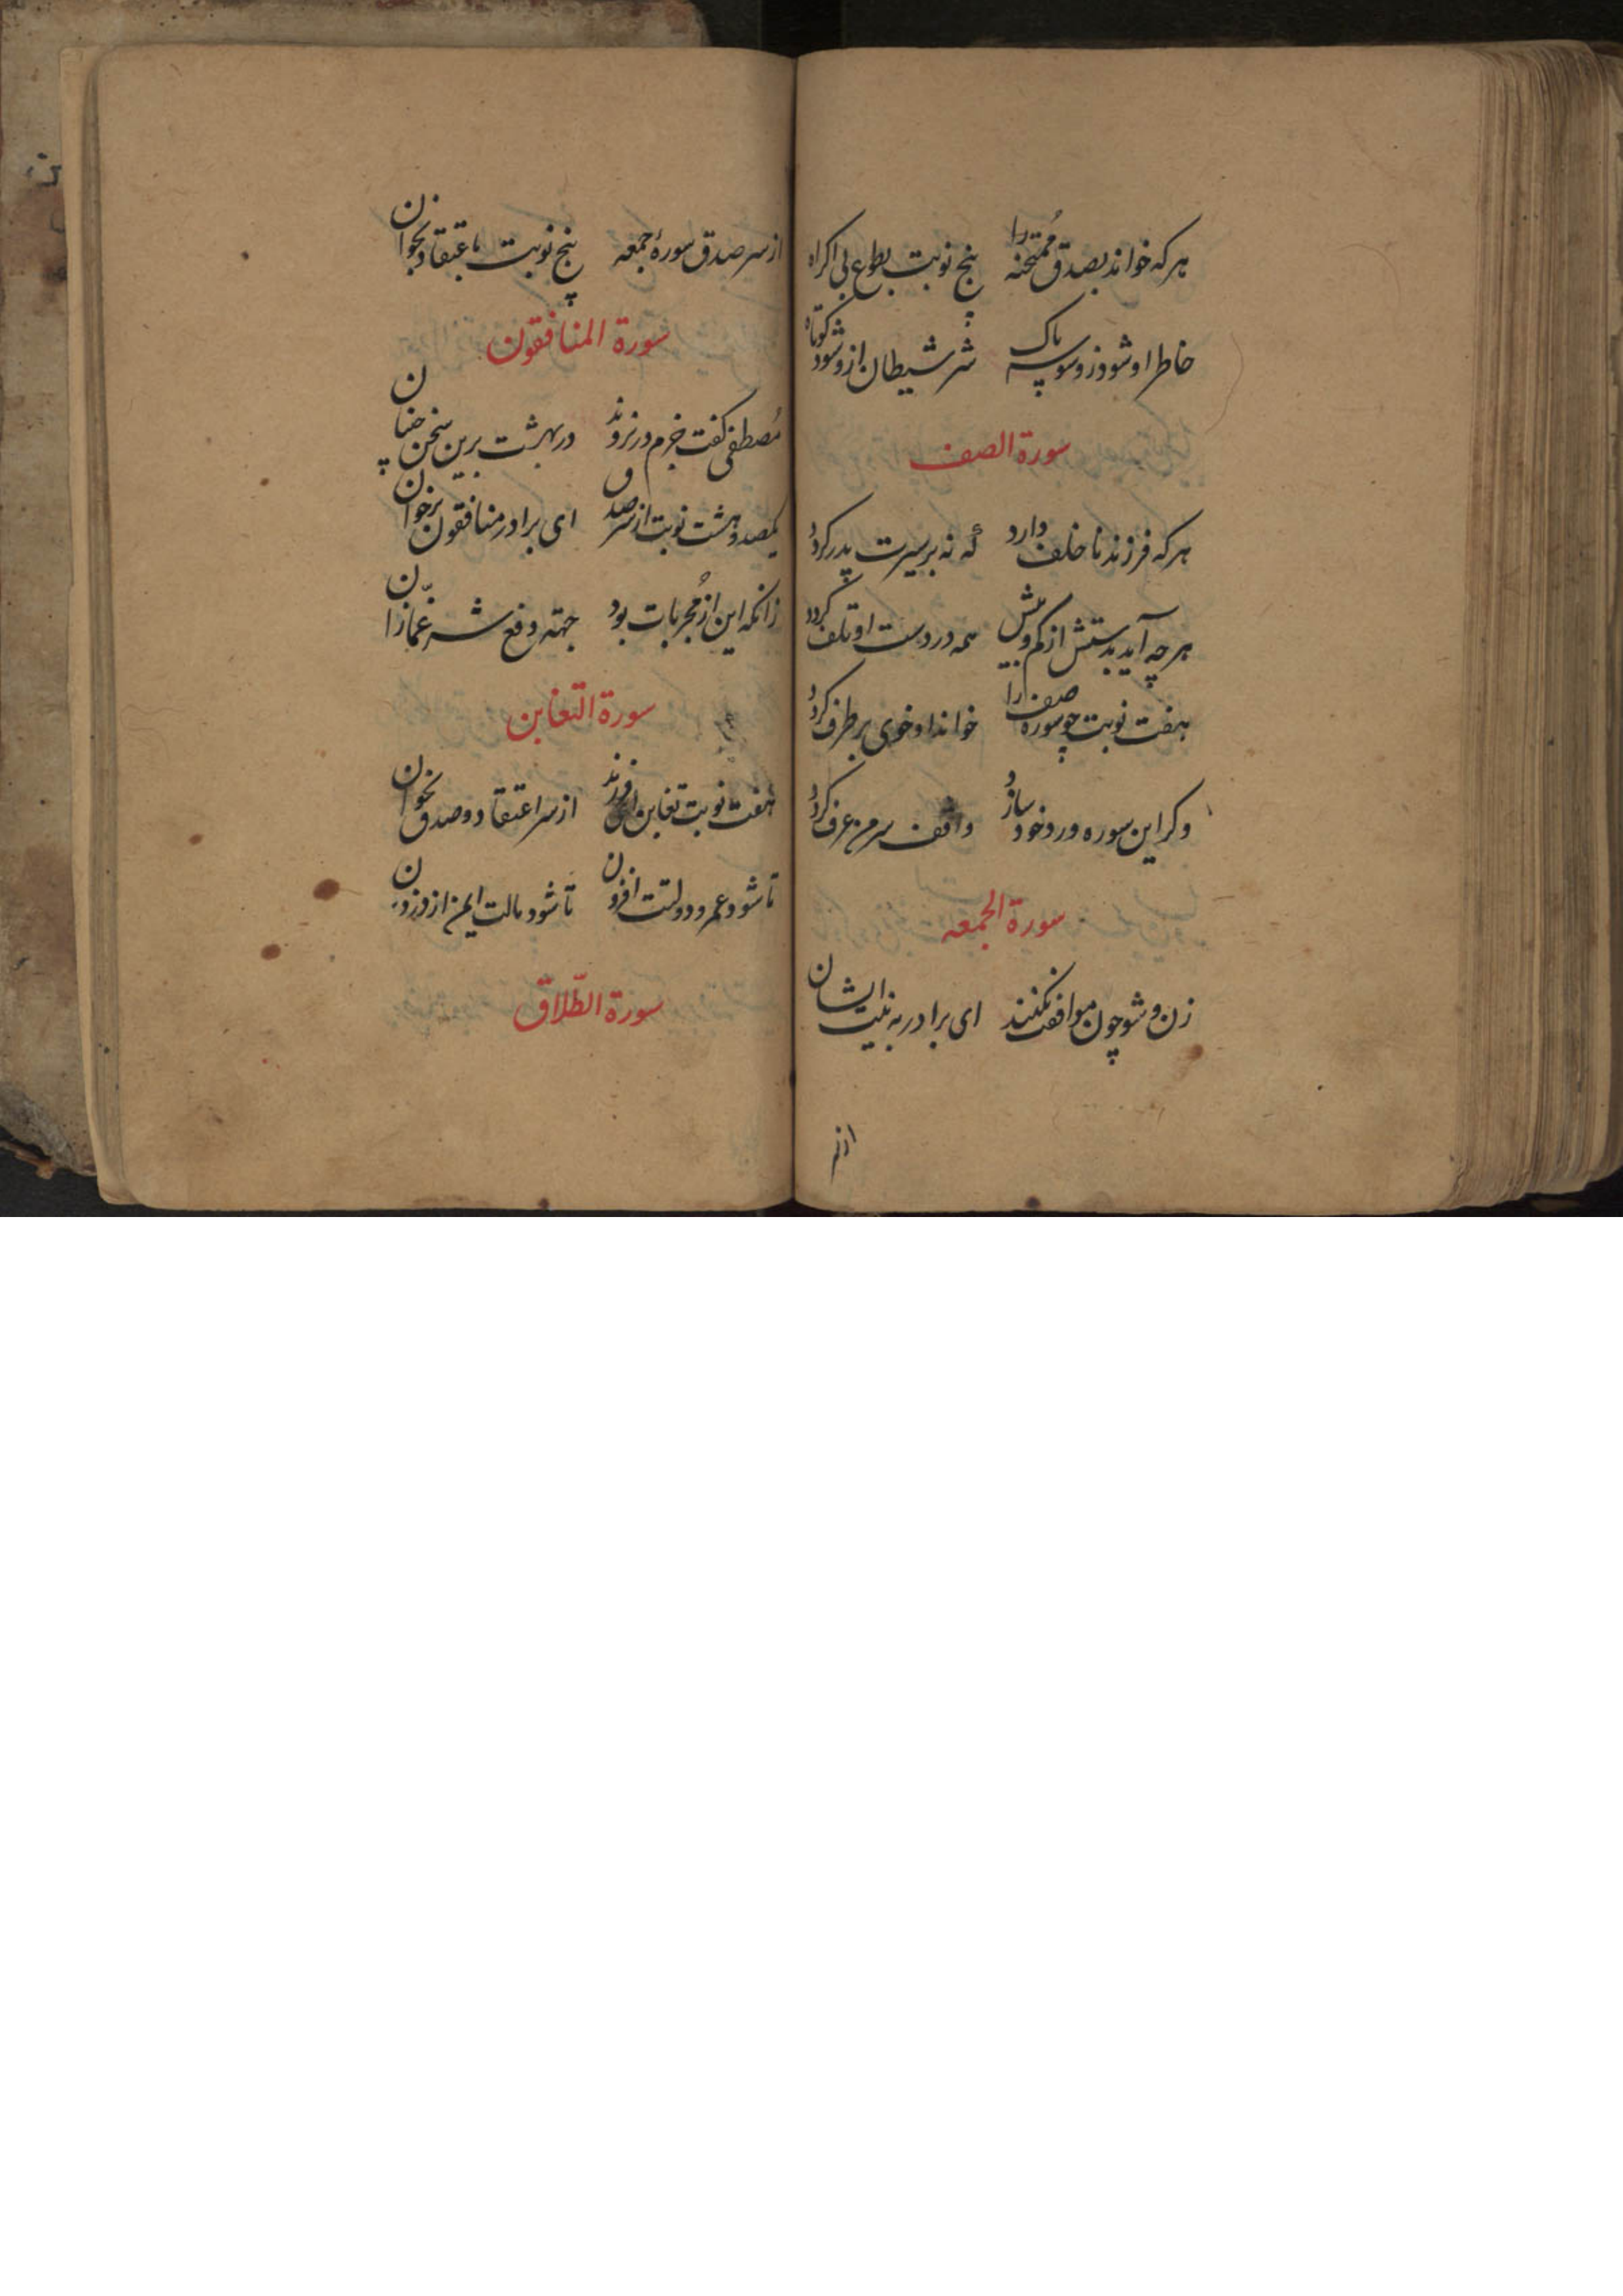 هر که خواند بصدق ممتحنه را پنج نوبت بطوع بی اکراه
خاطر او شود ز وسوسه پاک شر شیطان ازو شود کوتاه
سورة الصف
هر که فرزند ناخلف دارد که نه بر سیرت پدر گردد
هر چه آید بدستش از کم و بیش همه در دست او تلف گردد
هفت نوبت چو سوره صف را خواند او خوی بر طرف گردد
وکر این سوره ورد خود سازد واقف سر من عرف گردد
سورة الجمعه
زن و شو چون موافقت نکنند ای برادر به نیت ایشان
از سر
از سر صدق سورهٔ جمعه پنج نوبت باعتقاد بخوان
سورة المنافقون
مصطفی گفت خرم در نروند در بهشت برین سخن چینان
یکصد و هشت نوبت از سر صدق ای برادر منافقون برخوان
زانکه این از مجربات بود جهته دفع شر غمازان
سورة التغابن
هفت نوبت تغابن ای فرزند از سر اعتقاد و صدق بخوان
تا شود عمر و دولتت افزون تا شود مالت ایمن از دزدان
سورة الطّلاق